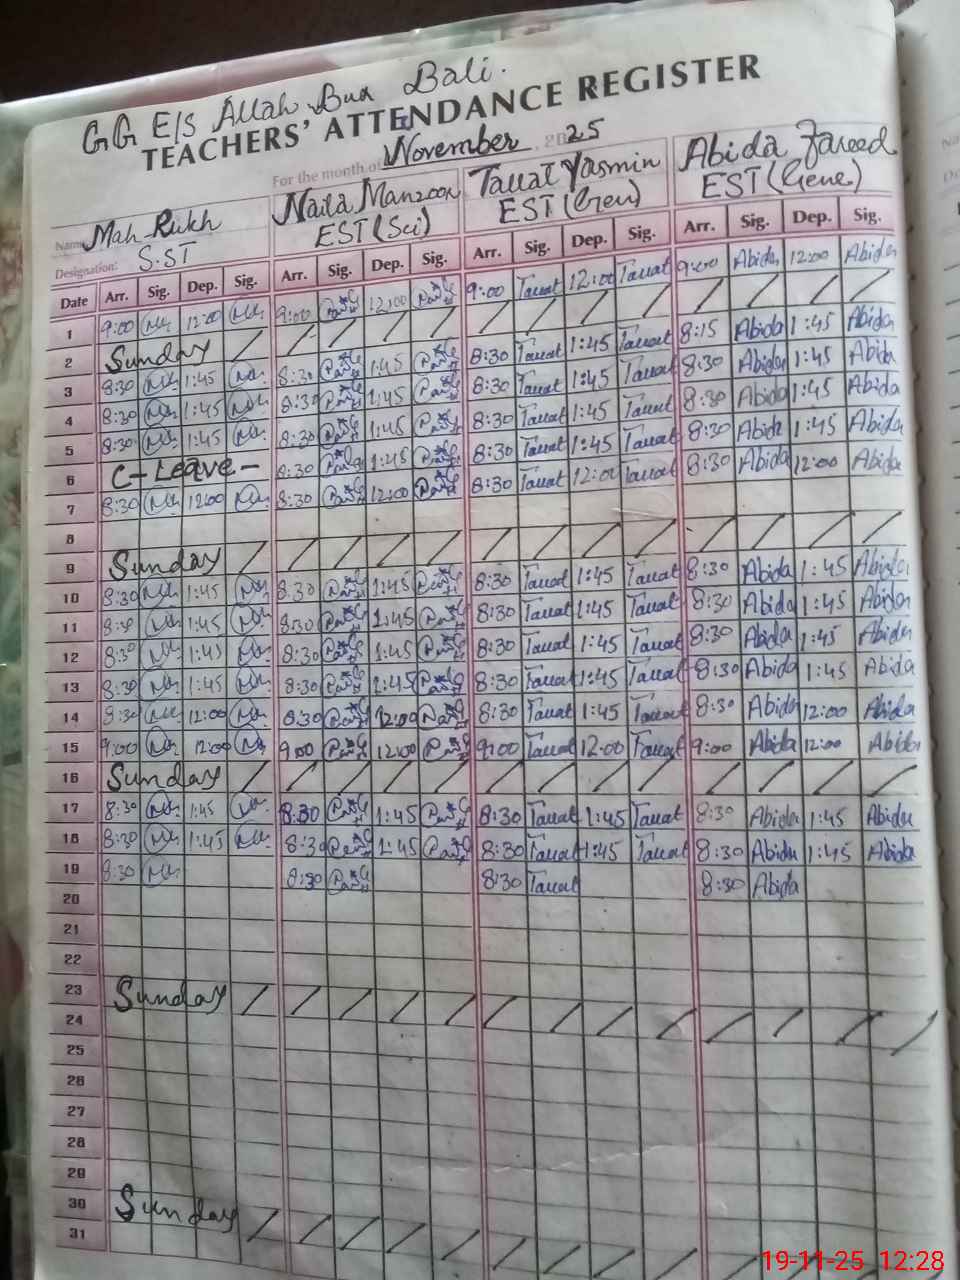 GG E/S Allah Bux Bali.
TEACHERS' ATTENDANCE REGISTER
For the month of November, 2025
Name Mah Rukh Naila Manzoor Tauat Yasmin Abida Fareed
Designation: S.ST EST (Sci) EST (Gen) EST (Gene)
Date Arr. Sig. Dep. Sig. Arr. Sig. Dep. Sig. Arr. Sig. Dep. Sig. Arr. Sig. Dep. Sig.
1 9:00 12:00 9:00 12:00 9:00 Tauat 12:00 Tauat 9:00 Abida 12:00 Abida
2 Sunday / / / / / / / / / / / / /
3 8:30 1:45 8:30 1:45 8:30 Tauat 1:45 Tauat 8:15 Abida 1:45 Abida
4 8:30 1:45 8:30 1:45 8:30 Tauat 1:45 Tauat 8:30 Abida 1:45 Abida
5 8:30 1:45 8:30 1:45 8:30 Tauat 1:45 Tauat 8:30 Abida 1:45 Abida
6 C-Leave- 8:30 1:45 8:30 Tauat 1:45 Tauat 8:30 Abida 1:45 Abida
7 8:30 12:00 8:30 12:00 8:30 Tauat 12:00 Tauat 8:30 Abida 12:00 Abida
8
9 Sunday / / / / / / / / / / / / /
10 8:30 1:45 8:30 1:45 8:30 Tauat 1:45 Tauat 8:30 Abida 1:45 Abida
11 8:30 1:45 8:30 1:45 8:30 Tauat 1:45 Tauat 8:30 Abida 1:45 Abida
12 8:30 1:45 8:30 1:45 8:30 Tauat 1:45 Tauat 8:30 Abida 1:45 Abida
13 8:30 1:45 8:30 1:45 8:30 Tauat 1:45 Tauat 8:30 Abida 1:45 Abida
14 8:30 12:00 8:30 12:00 8:30 Tauat 1:45 Tauat 8:30 Abida 12:00 Abida
15 9:00 12:00 9:00 12:00 9:00 Tauat 12:00 Tauat 9:00 Abida 12:00 Abida
16 Sunday / / / / / / / / / / / / /
17 8:30 1:45 8:30 1:45 8:30 Tauat 1:45 Tauat 8:30 Abida 1:45 Abida
18 8:30 1:45 8:30 1:45 8:30 Tauat 1:45 Tauat 8:30 Abida 1:45 Abida
19 8:30 8:30 8:30 Tauat 8:30 Abida
20
21
22
23 Sunday / / / / / / / / / / / / /
24
25
26
27
28
29
30 Sunday / / / / / / / / / / / / /
31
19-11-25 12:28